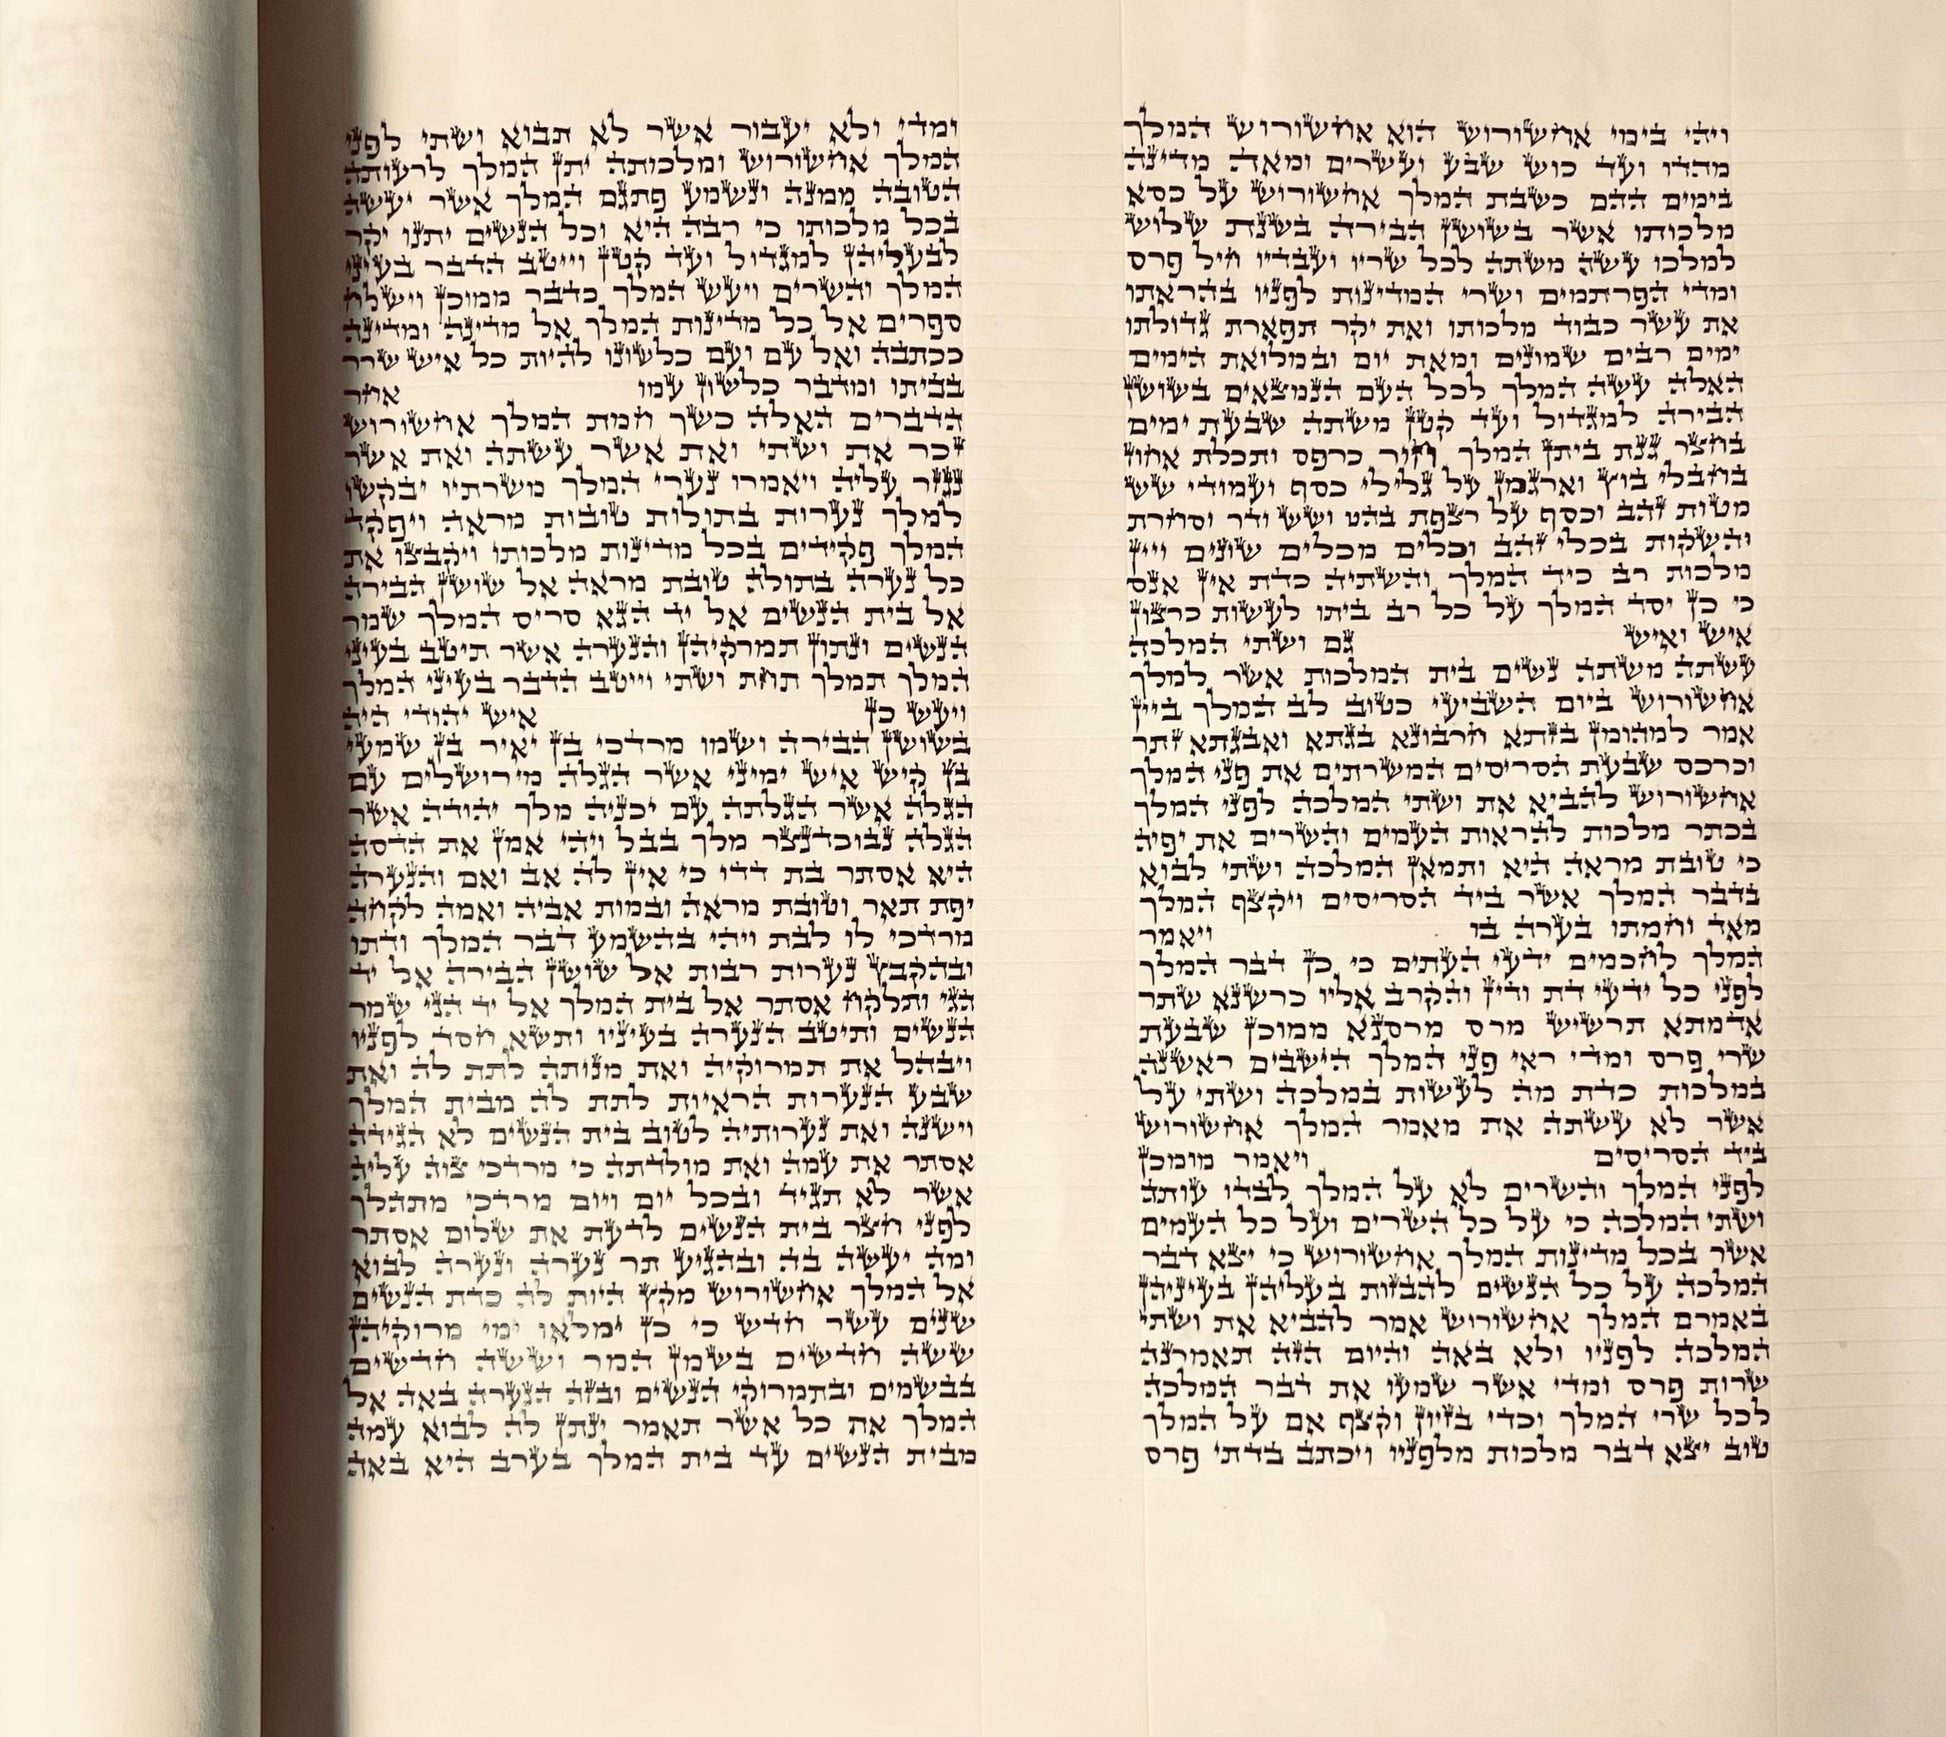 ויהי בימי אחשורוש הוא אחשורוש המלך
מהדו ועד כוש שבע ועשרים ומאה מדינה
בימים ההם כשבת המלך אחשורוש על כסא
מלכותו אשר בשושן הבירה בשנת שלוש
למלכו עשה משתה לכל שריו ועבדיו חיל פרס
ומדי הפרתמים ושרי המדינות לפניו בהראתו
את עשר כבוד מלכותו ואת יקר תפארת גדולתו
ימים רבים שמונים ומאת יום ובמלואת הימים
האלה עשה המלך לכל העם הנמצאים בשושן
הבירה למגדול ועד קטן משתה שבעת ימים
בחצר גנת ביתן המלך חור כרפס ותכלת אחוז
בחבלי בוץ וארגמן על גלילי כסף ועמודי שש
מטות זהב וכסף על רצפת בהט ושש ודר וסחרת
והשקות בכלי זהב וכלים מכלים שונים ויין
מלכות רב כיד המלך והשתיה כדת אין אנס
כי כן יסד המלך על כל רב ביתו לעשות כרצון
איש ואיש גם ושתי המלכה
עשתה משתה נשים בית המלכות אשר למלך
אחשורוש ביום השביעי כטוב לב המלך ביין
אמר למהומן בזתא חרבונא בגתא ואבגתא זתר
וכרכס שבעת הסריסים המשרתים את פני המלך
אחשורוש להביא את ושתי המלכה לפני המלך
בכתר מלכות להראות העמים והשרים את יפיה
כי טובת מראה היא ותמאן המלכה ושתי לבוא
בדבר המלך אשר ביד הסריסים ויקצף המלך
מאד וחמתו בערה בו ויאמר
המלך לחכמים ידעי העתים כי כן דבר המלך
לפני כל ידעי דת ודין והקרב אליו כרשנא שתר
אדמתא תרשיש מרס מרסנא ממוכן שבעת
שרי פרס ומדי ראי פני המלך הישבים ראשנה
במלכות כדת מה לעשות במלכה ושתי על
אשר לא עשתה את מאמר המלך אחשורוש
ביד הסריסים ויאמר מומכן
לפני המלך והשרים לא על המלך לבדו עותה
ושתי המלכה כי על כל השרים ועל כל העמים
אשר בכל מדינות המלך אחשורוש כי יצא דבר
המלכה על כל הנשים להבזות בעליהן בעיניהן
באמרם המלך אחשורוש אמר להביא את ושתי
המלכה לפניו ולא באה והיום הזה תאמרנה
שרות פרס ומדי אשר שמעו את דבר המלכה
לכל שרי המלך וכדי בזיון וקצף אם על המלך
טוב יצא דבר מלכות מלפניו ויכתב בדתי פרס
ומדי ולא יעבור אשר לא תבוא ושתי לפני
המלך אחשורוש ומלכותה יתן המלך לרעותה
הטובה ממנה ונשמע פתגם המלך אשר יעשה
בכל מלכותו כי רבה היא וכל הנשים יתנו יקר
לבעליהן למגדול ועד קטן וייטב הדבר בעיני
המלך והשרים ויעש המלך כדבר ממוכן וישלח
ספרים אל כל מדינות המלך אל מדינה ומדינה
ככתבה ואל עם ועם כלשונו להיות כל איש שרר
בביתו ומדבר כלשון עמו אחר
הדברים האלה כשך חמת המלך אחשורוש
זכר את ושתי ואת אשר עשתה ואת אשר
נגזר עליה ויאמרו נערי המלך משרתיו יבקשו
למלך נערות בתולות טובות מראה ויפקד
המלך פקידים בכל מדינות מלכותו ויקבצו את
כל נערה בתולה טובת מראה אל שושן הבירה
אל בית הנשים אל יד הגא סריס המלך שמר
הנשים ונתון תמרקיהן והנערה אשר תיטב בעיני
המלך תמלך תחת ושתי וייטב הדבר בעיני המלך
ויעש כן איש יהודי היה
בשושן הבירה ושמו מרדכי בן יאיר בן שמעי
בן קיש איש ימיני אשר הגלה מירושלים עם
הגלה אשר הגלתה עם יכניה מלך יהודה אשר
הגלה נבוכדנצר מלך בבל ויהי אמן את הדסה
היא אסתר בת דדו כי אין לה אב ואם והנערה
יפת תאר וטובת מראה ובמות אביה ואמה לקחה
מרדכי לו לבת ויהי בהשמע דבר המלך ודתו
ובהקבץ נערות רבות אל שושן הבירה אל יד
הגי ותלקח אסתר אל בית המלך אל יד הגי שמר
הנשים ותיטב הנערה בעיניו ותשא חסד לפניו
ויבהל את תמרוקיה ואת מנותה לתת לה ואת
שבע הנערות הראיות לתת לה מבית המלך
וישנה ואת נערותיה לטוב בית הנשים לא הגידה
אסתר את עמה ואת מולדתה כי מרדכי צוה עליה
אשר לא תגיד ובכל יום ויום מרדכי מתהלך
לפני חצר בית הנשים לדעת את שלום אסתר
ומה יעשה בה ובהגיע תר נערה ונערה לבוא
אל המלך אחשורוש מקץ היות לה כדת הנשים
שנים עשר חדש כי כן ימלאו ימי מרוקיהן
ששה חדשים בשמן המר וששה חדשים
בבשמים ובתמרוקי הנשים ובזה הנערה באה אל
המלך את כל אשר תאמר ינתן לה לבוא עמה
מבית הנשים עד בית המלך בערב היא באה